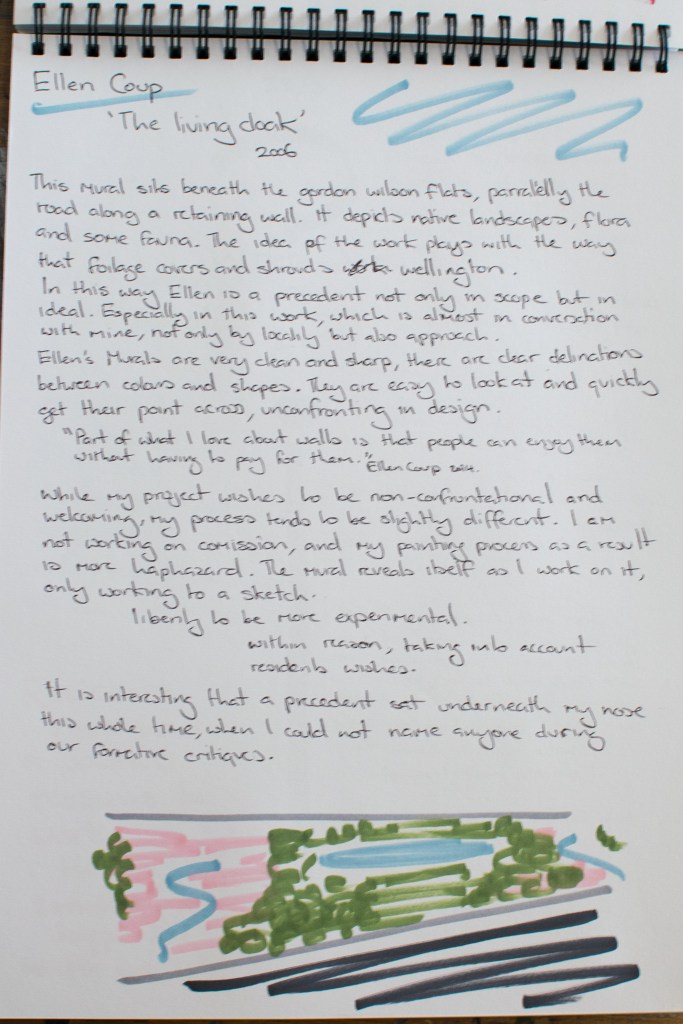 Ellen Coup
'The living cloak'
2006
This mural sits beneath the gordon wilson flats, parralelly the
road along a retaining wall. It depicts native landscapes, flora
and some fauna. The idea of the work plays with the way
that foilage covers and shrouds wellington.
In this way Ellen is a precedent not only in scope but in
ideal. Especially in this work, which is almost in conversation
with mine, not only by locality but also approach.
Ellen's Murals are very clean and sharp, there are clear delinations
between colours and shapes. They are easy to look at and quickly
get their point across, unconfronting in design.
"Part of what I love about walls is that people can enjoy them
without having to pay for them." Ellen Coup 2014.
While my project wishes to be non-confrontational and
welcoming, my process tends to be slightly different. I am
not working on comission, and my painting process as a result
is more haphazard. The mural reveals itself as I work on it,
only working to a sketch.
liberty to be more experimental.
within reason, taking into account
residents wishes.
It is interesting that a precedent sat underneath my nose
this whole time, when I could not name anyone during
our formative critiques.